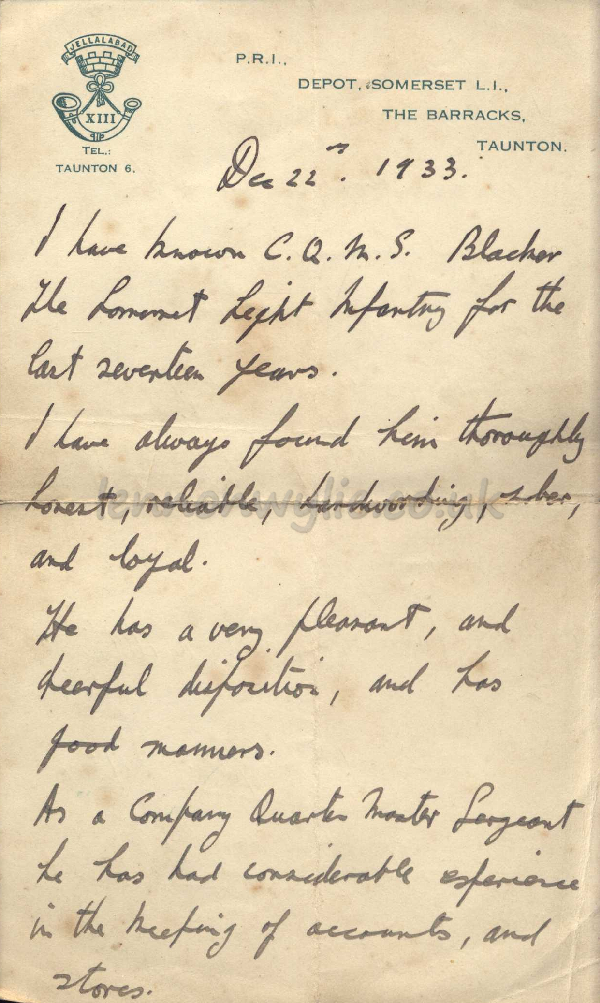 JELLALABAD
XIII
TEL.:
TAUNTON 6.
P.R.I.,
DEPOT, SOMERSET L.I.,
THE BARRACKS,
TAUNTON.
Dec 22nd. 1933.
I have known C.Q.M.S. Blacker
The Somerset Light Infantry for the
last seventeen years.
I have always found him thoroughly
honest, reliable, hardworking, sober,
and loyal.
He has a very pleasant, and
cheerful disposition, and has
good manners.
As a Company Quarter Master Sergeant
he has had considerable experience
in the keeping of accounts, and
stores.